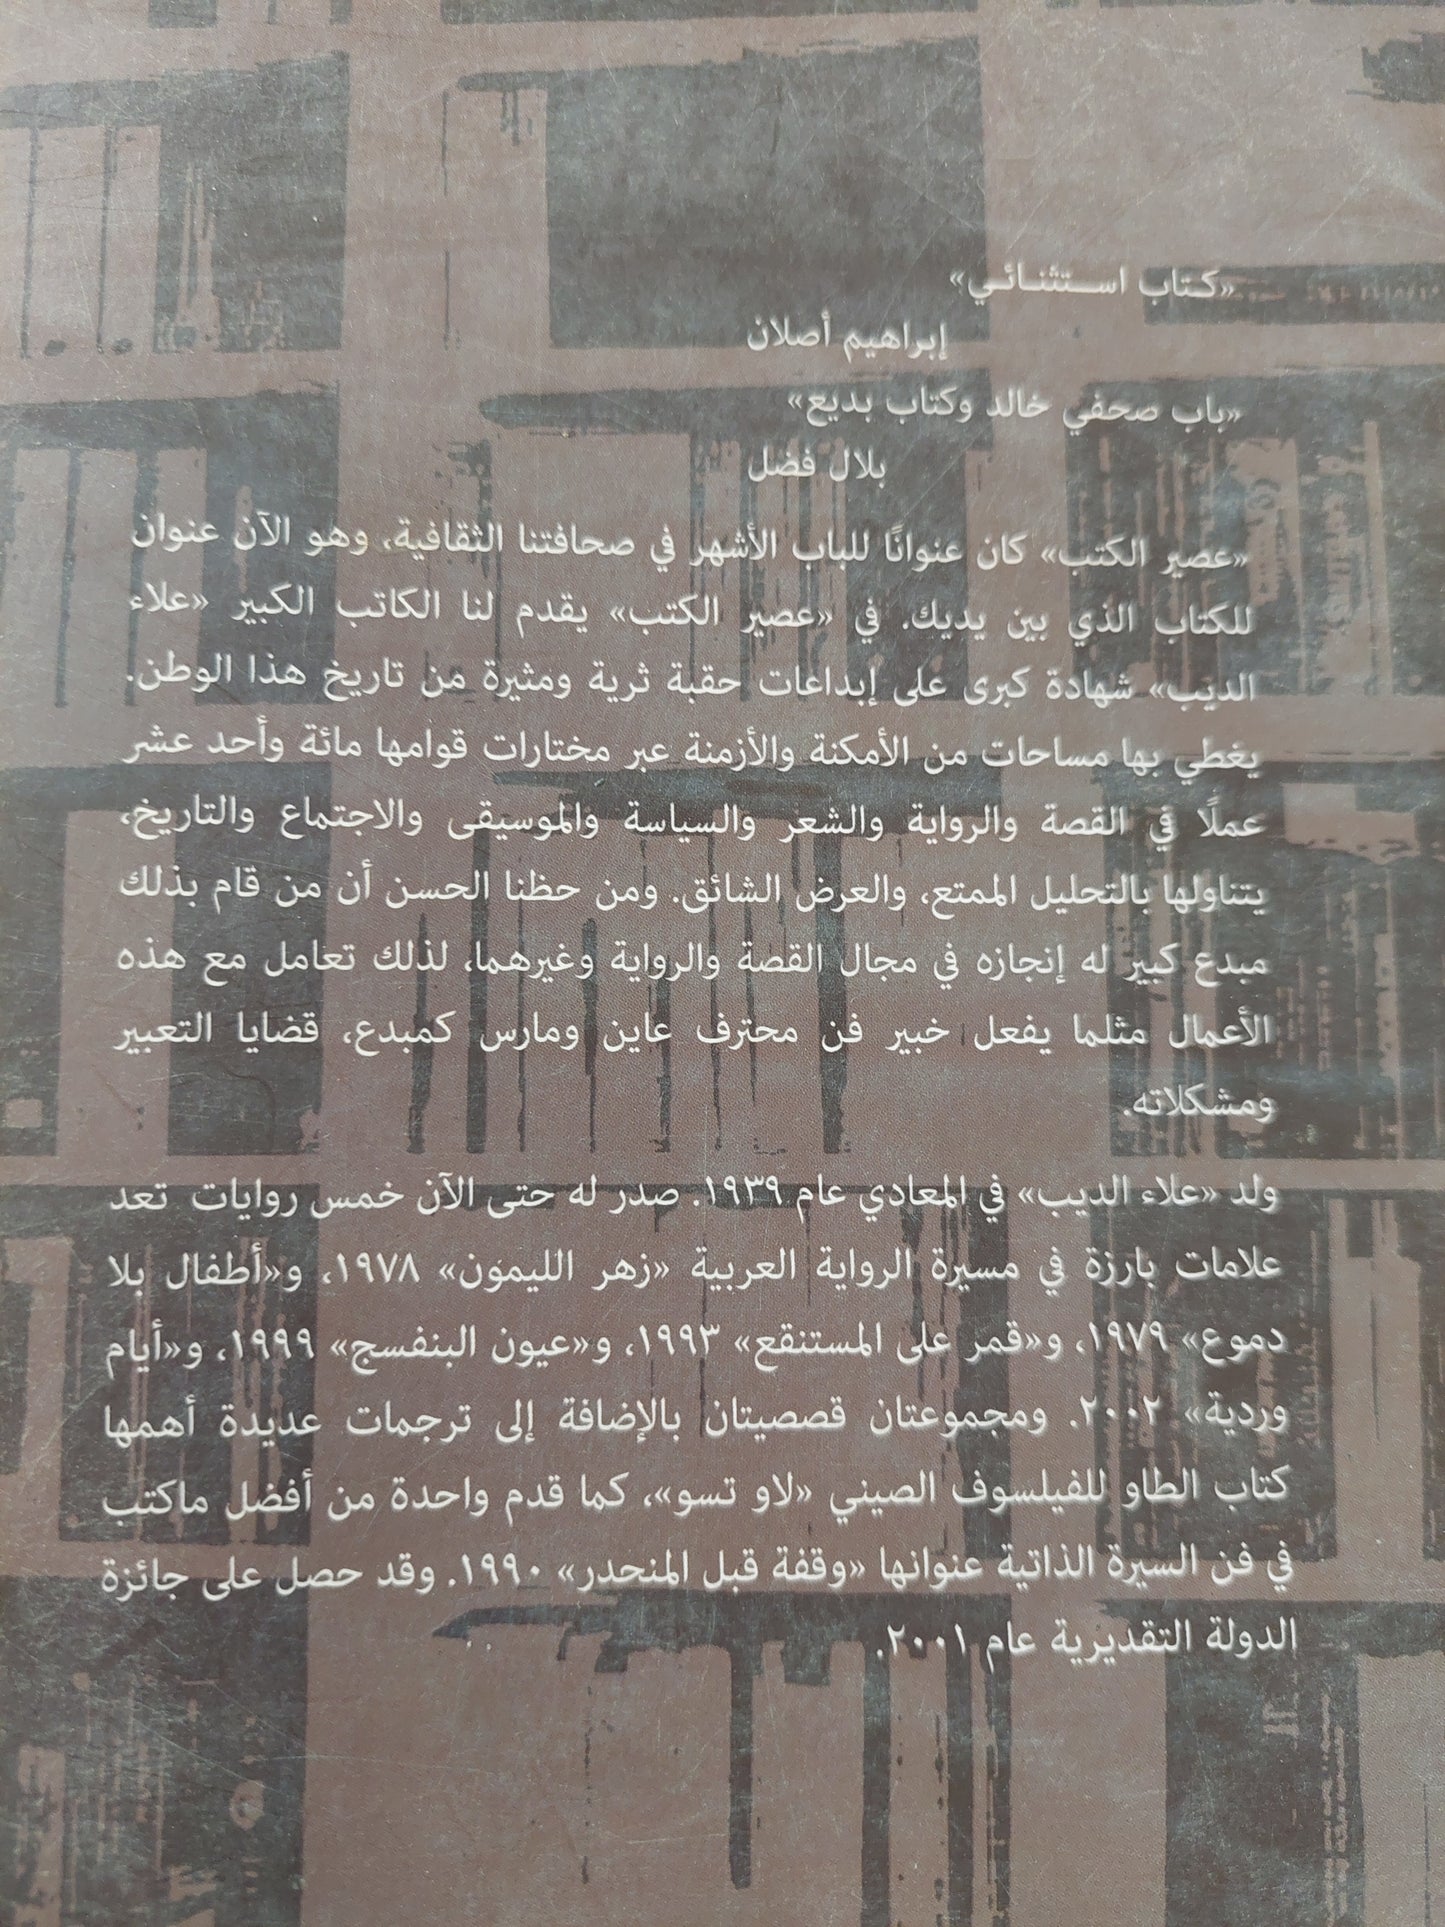 «كتاب استثنائي»
إبراهيم أصلان
«باب صحفي خالد وكتاب بديع»
بلال فضل
«عصير الكتب» كان عنوانًا للباب الأشهر في صحافتنا الثقافية، وهو الآن عنوان
للكتاب الذي بين يديك. في «عصير الكتب» يقدم لنا الكاتب الكبير «علاء
الديب» شهادة كبرى على إبداعات حقبة ثرية ومثيرة من تاريخ هذا الوطن.
يغطي بها مساحات من الأمكنة والأزمنة عبر مختارات قوامها مائة وأحد عشر
عملًا في القصة والرواية والشعر والسياسة والموسيقى والاجتماع والتاريخ،
يتناولها بالتحليل الممتع، والعرض الشائق. ومن حظنا الحسن أن من قام بذلك
مبدع كبير له إنجازه في مجال القصة والرواية وغيرهما، لذلك تعامل مع هذه
الأعمال مثلما يفعل خبير فن محترف عاين ومارس كمبدع، قضايا التعبير
ومشكلاته.
ولد «علاء الديب» في المعادي عام ١٩٣٩. صدر له حتى الآن خمس روايات تعد
علامات بارزة في مسيرة الرواية العربية «زهر الليمون» ١٩٧٨، و«أطفال بلا
دموع» ١٩٧٩، و«قمر على المستنقع» ١٩٩٣، و«عيون البنفسج» ١٩٩٩، و«أيام
وردية» ٢٠٠٢. ومجموعتان قصصيتان بالإضافة إلى ترجمات عديدة أهمها
كتاب الطاو للفيلسوف الصيني «لاو تسو»، كما قدم واحدة من أفضل ماكتب
في فن السيرة الذاتية عنوانها «وقفة قبل المنحدر» ١٩٩٠. وقد حصل على جائزة
الدولة التقديرية عام ٢٠٠١.